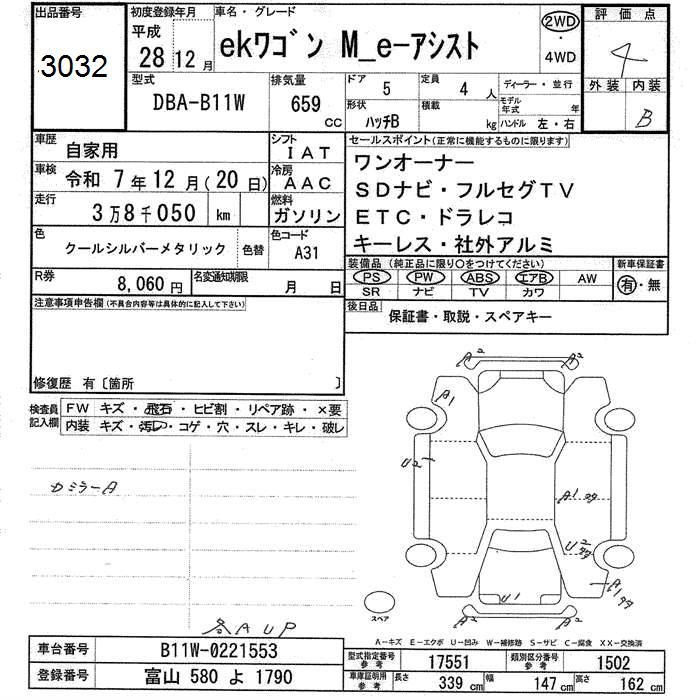 出品番号
3032
初度登録年月
平成
28 12 月
車名・グレード
ekワゴン M_e-アシスト
2WD
・
4WD
評価点
4
外装 内装
B
型式
DBA-B11W
排気量
659
CC
ドア 5
定員 4 人
ディーラー・並行
モデル年式 年
形状 ハッチB
積載 kg
ハンドル 左・右
車歴 自家用
シフト IAT
車検 令和 7年12月(20日)
冷房 AAC
走行 3万8千050 km
燃料 ガソリン
色 クールシルバーメタリック 色替
色コード A31
R券 8,060 円
名変通知期限 月 日
セールスポイント(正常に機能するものに限ります)
ワンオーナー
SDナビ・フルセグTV
ETC・ドラレコ
キーレス・社外アルミ
装備品(純正品に限り○をつけてください)
新車保証書
PS PW ABS エアB AW
SR ナビ TV カワ
有・無
後日品 保証書・取説・スペアキー
注意事項申告欄(不具合内容等は具体的に記入して下さい)
修復歴 有〔箇所 〕
検査員記入欄
FW キズ・飛石・ヒビ割・リペア跡・×要
内装 キズ・汚レ・コゲ・穴・スレ・キレ・破レ
ミラーA
AUP
A2 A2
A1
U2
A1
U2
U1
A1
スペア
A-キズ E-エクボ U-凹み W-補修跡 S-サビ C-腐食 XX-交換済
車台番号 B11W-0221553
登録番号 富山 580 よ 1790
型式指定番号 参考 17551
類別区分番号 参考 1502
車庫証明用 参考 長さ 339 cm 幅 147 cm 高さ 162 cm